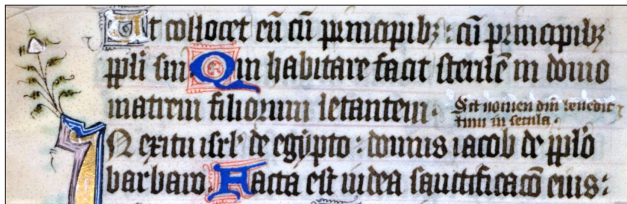 Ut collocet eū cū principibꝫ : cū principibꝫ
ppli sui Qui habitare facit sterilē in domo
matrem filiorum letantem . Sit nomen dni benedic
tum in secula .
IN exitu isrl' de egypto : domus iacob de pplo
barbaro : Facta est iudea sanctificacō eius :